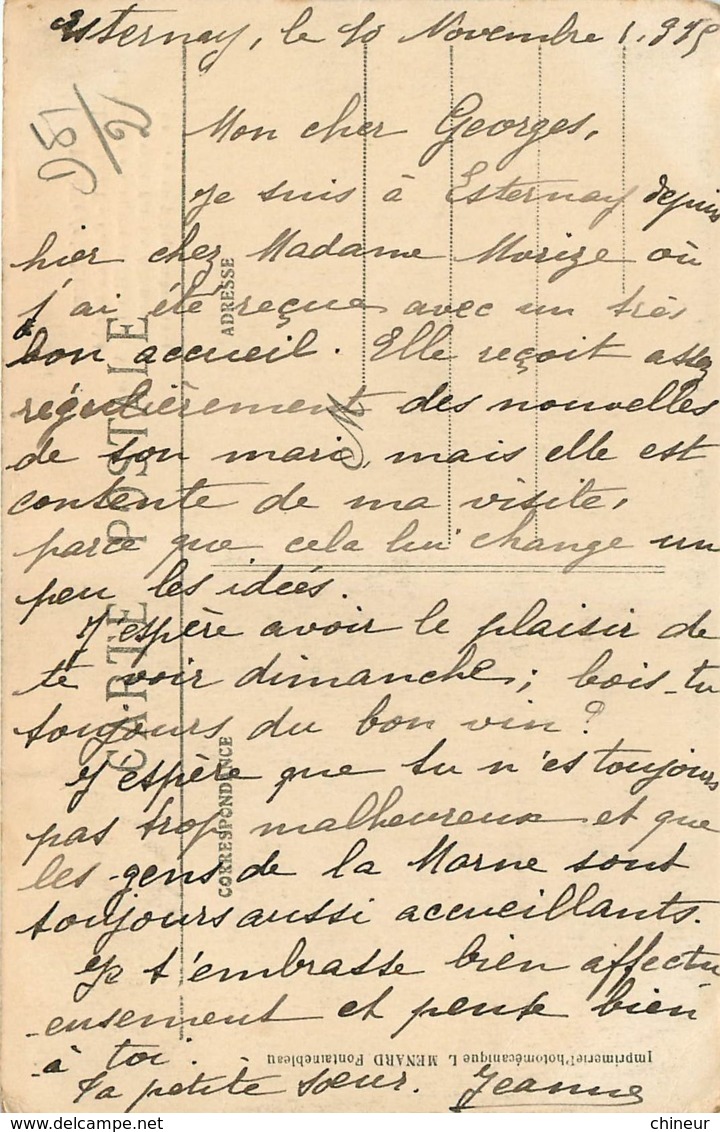 Esternay, le 10 Novembre 1.915
Mon cher Georges,
Je suis à Esternay depuis
hier chez Madame Morize où
j'ai été reçue avec un très
bon accueil. Elle reçoit assez
régulièrement des nouvelles
de son mari, mais elle est
contente de ma visite,
parce que cela lui change un
peu les idées.
J'espère avoir le plaisir de
te voir dimanche; bois-tu
toujours du bon vin?
J'espère que tu n'es toujours
pas trop malheureux et que
les gens de la Marne sont
toujours aussi accueillants.
Je t'embrasse bien affectu
-eusement et pense bien
à toi.
Ta petite sœur. Jeanne
CARTE POSTALE
CORRESPONDENCE
ADRESSE
M
Imprimerie Photomécanique L. MENARD Fontainebleau
chineur